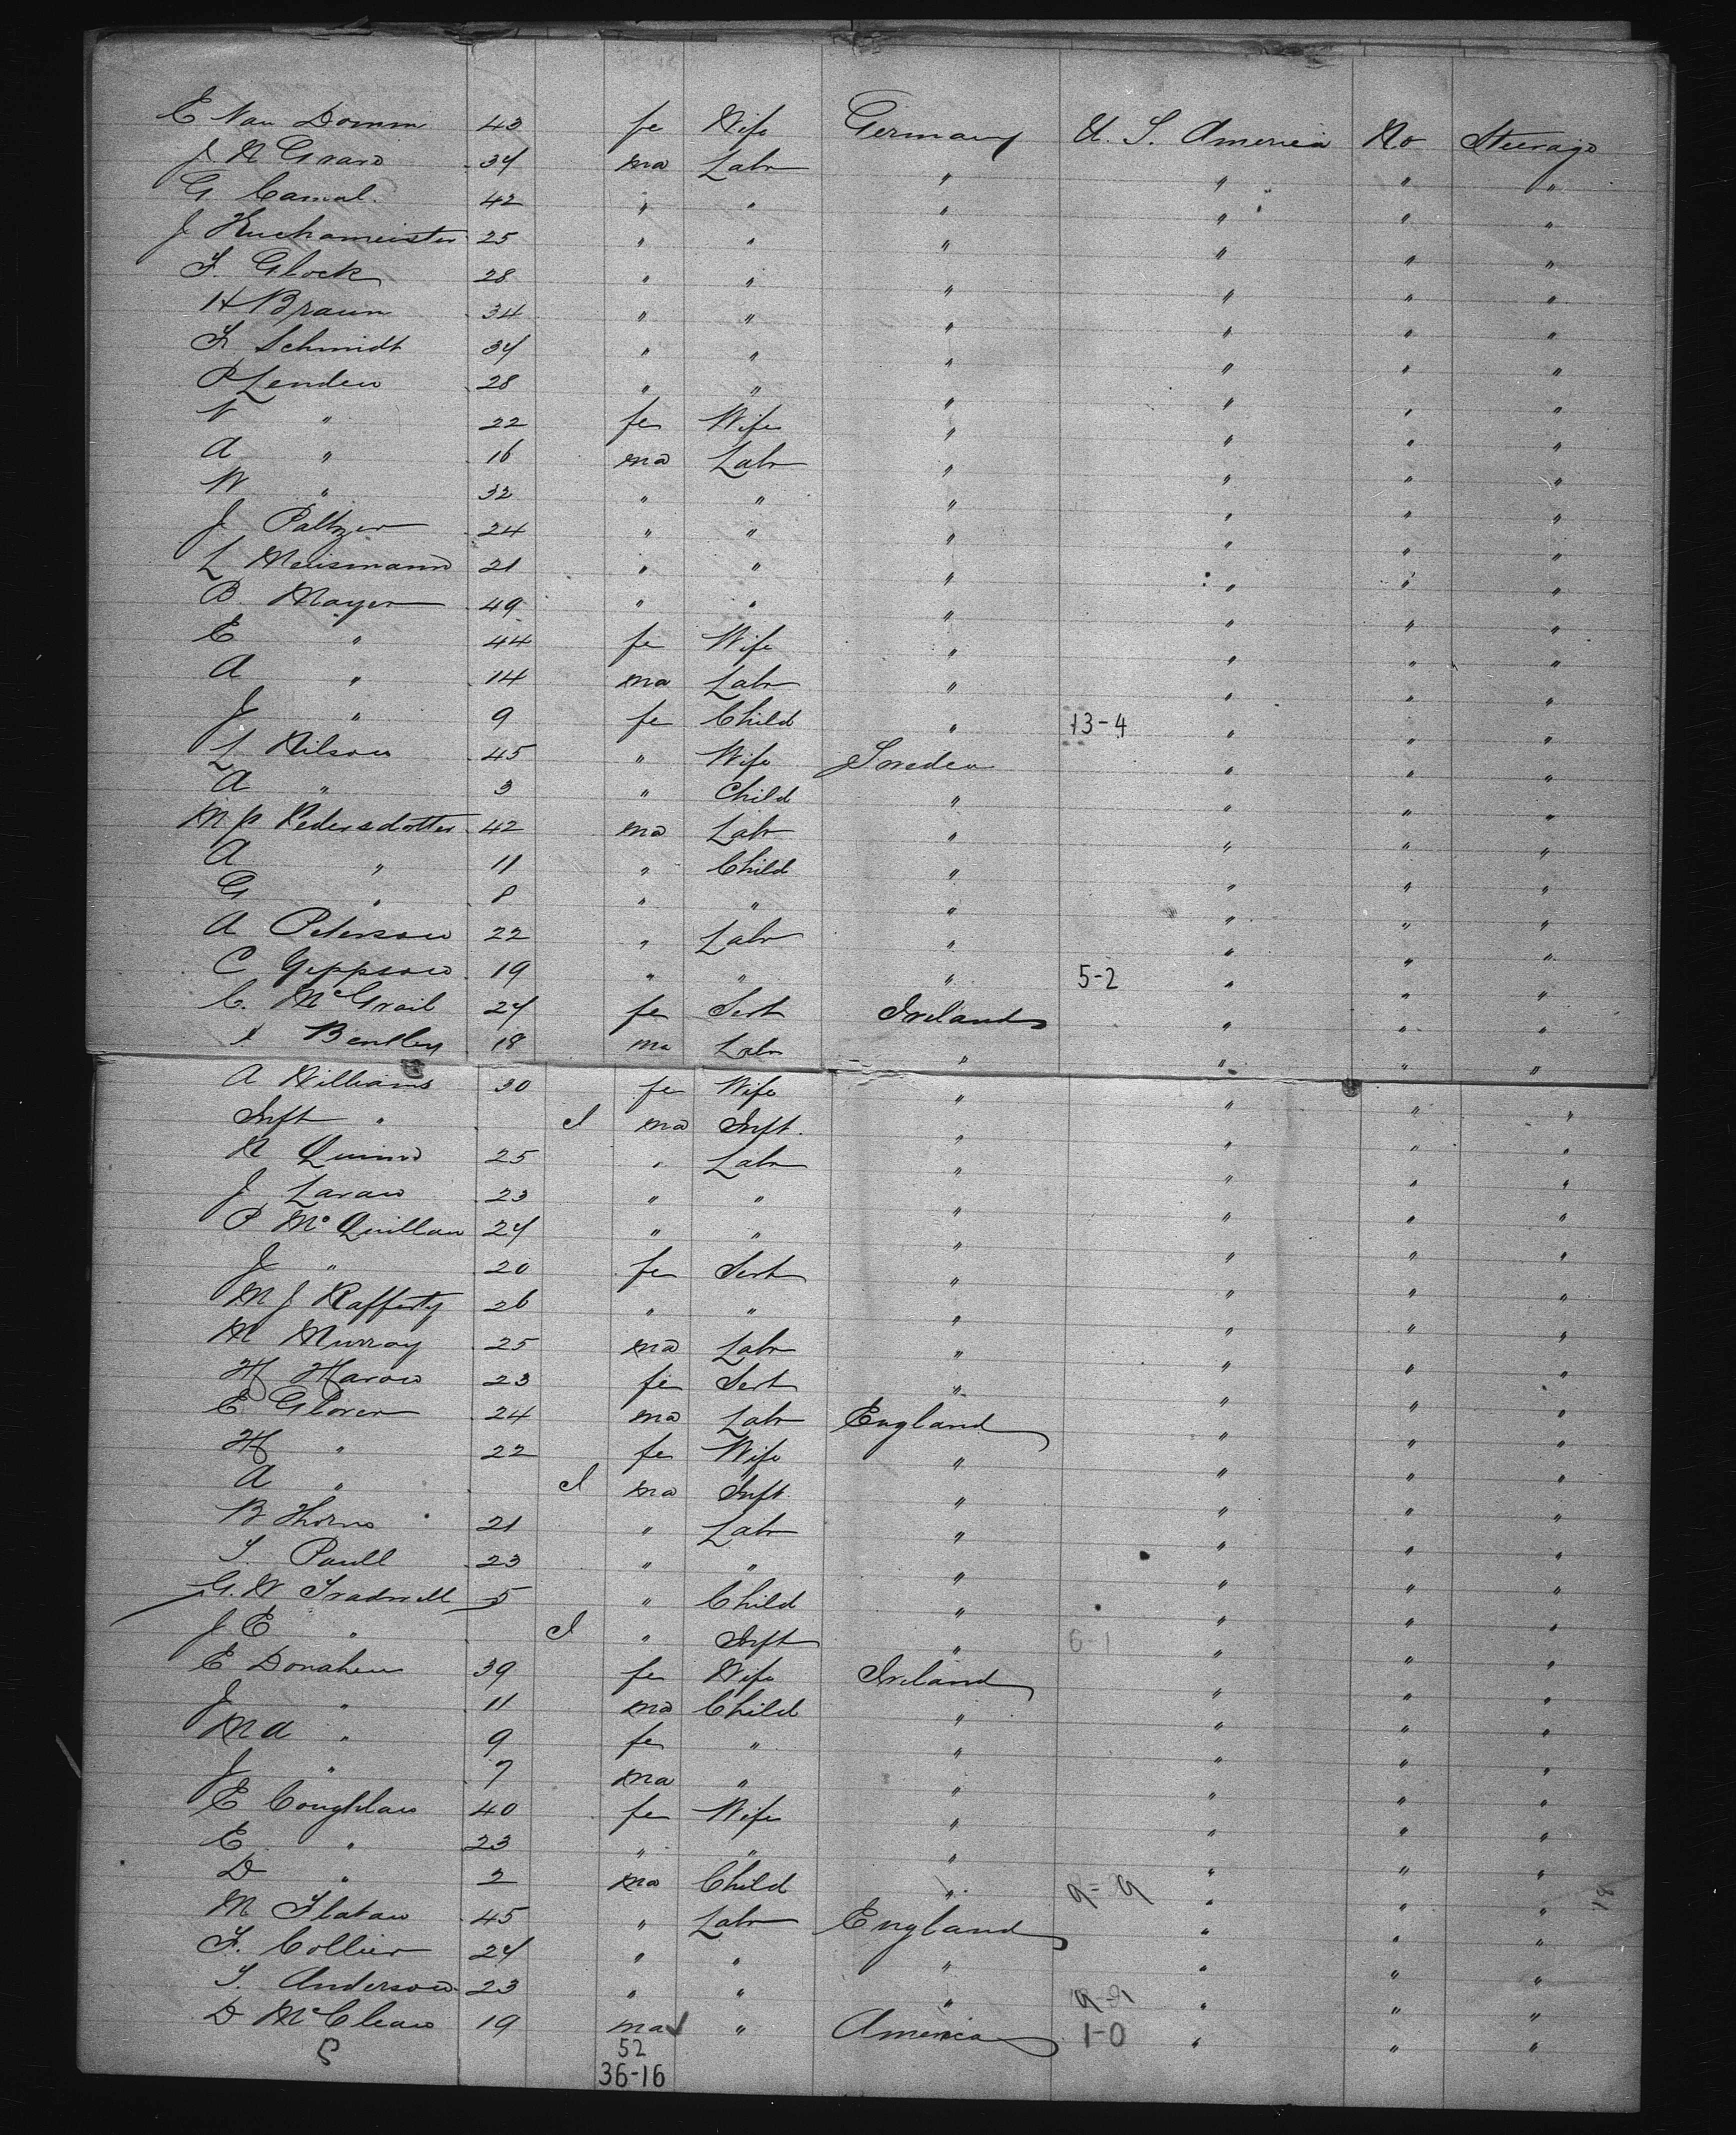 E Van Domm 43 fe Wife Germany U. S. America No Steerage
J N Girard 34 ma Labr " " " "
G. Camal. 42 " " " " " "
J Kuchameister 25 " " " " " "
F. Glock 28 " " " " " "
H Braun 34 " " " " " "
F. Schmidt 34 " " " " " "
P Zenden 28 " " " " " "
N " 22 fe Wife " " " "
A " 16 ma Labr " " " "
W " 32 " " " " " "
J Paltzer 24 " " " " " "
L Meusmann 21 " " " " " "
B. Mayer 49 " " " " " "
E " 44 fe Wife " " " "
A " 14 ma Labr " " " "
J " 9 fe Child " 13-4 " " "
L Nilson 45 " Wife Sweden " " "
A " 3 " Child " " " "
M P Pedersdotter 42 ma Labr " " " "
A " 11 " Child " " " "
G " 8 " " " " " "
A Peterson 22 " Labr " " " "
C Geppson 19 " " " 5-2 " " "
C. McGrail 24 fe Sert Ireland " " "
Bentley 18 ma Labr " " " "
A Williams 30 fe Wife " " " "
Inft " I ma Inft. " " " "
N Quinn 25 " Labr " " " "
J Laran 23 " " " " " "
P McQuillan 24 " " " " " "
J " 20 fe Sert " " " "
M J Rafferty 26 " " " " " "
M Murray 25 ma Labr " " " "
H Haron 23 fe Sert " " " "
E Glover 24 ma Labr England " " "
H " 22 fe Wife " " " "
A " I ma Inft. " " " "
B Thorn 21 " Labr " " " "
S. Paull 23 " " " " " "
G. W Tradwell 5 " Child " " " "
J E " I " Inft " 6-1 " " "
E Donahen 39 fe Wife Ireland " " "
J " 11 ma Child " " " "
M A " 9 fe " " " " "
J " 7 ma " " " " "
E Coughlan 40 fe Wife " " " "
E " 23 " " " " " "
D " 2 ma Child " " " "
M Flatau 45 " Labr England " " "
F. Collier 24 " " " " " "
S. Anderson 23 " " " " " "
D McClean 19 ma " America 1-0 " " "
52
36-16